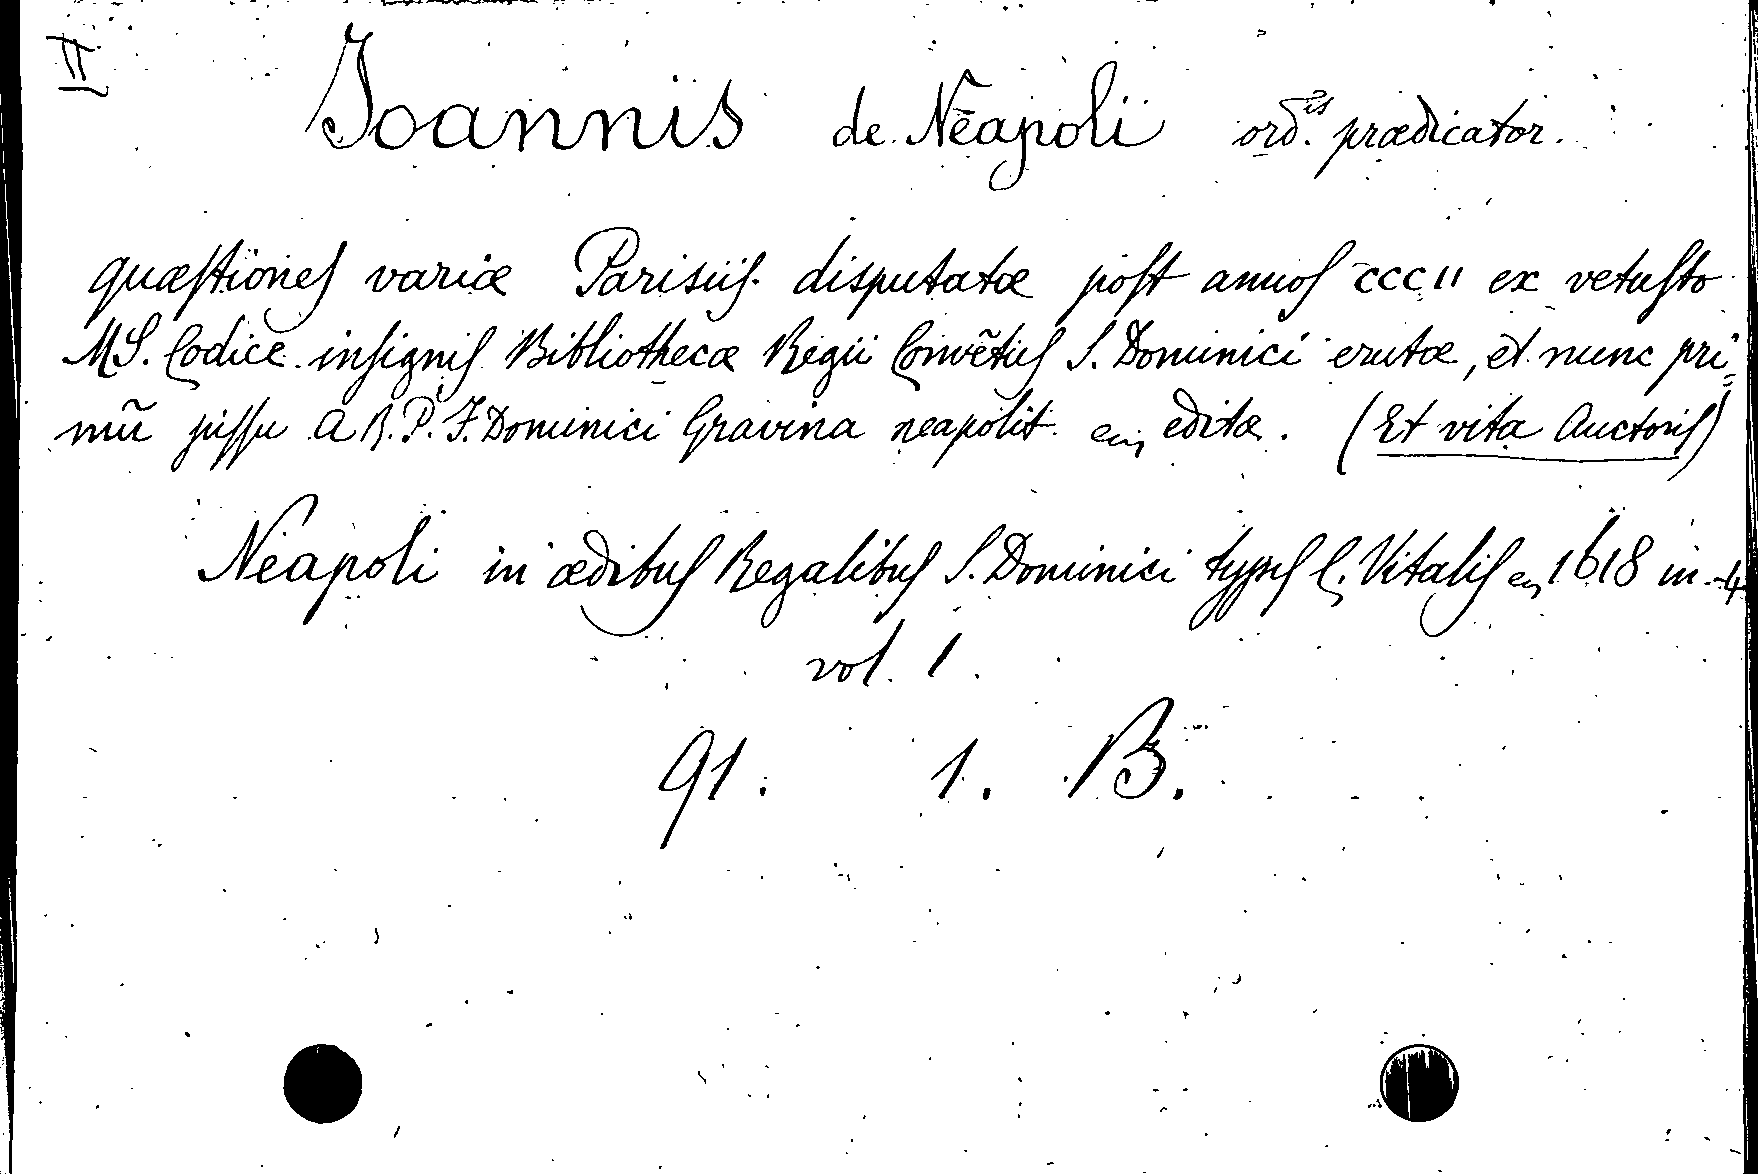 II
Joannis de Neapoli ord.is prædicator.
quæstiones variæ Parisiis disputatæ post annos CCCII ex vetusto
MS. Codice insignis Bibliothecæ Regii Convẽtus S. Dominici erutæ, et nunc pri=
mũ jussu A R. P. F. Dominici Gravina neapolit. editæ. (Et vita Auctoris)
Neapoli in ædibus Regalibus S. Dominici typis C. Vitalis 1618 in-4
vol. 1.
91. 1. B.